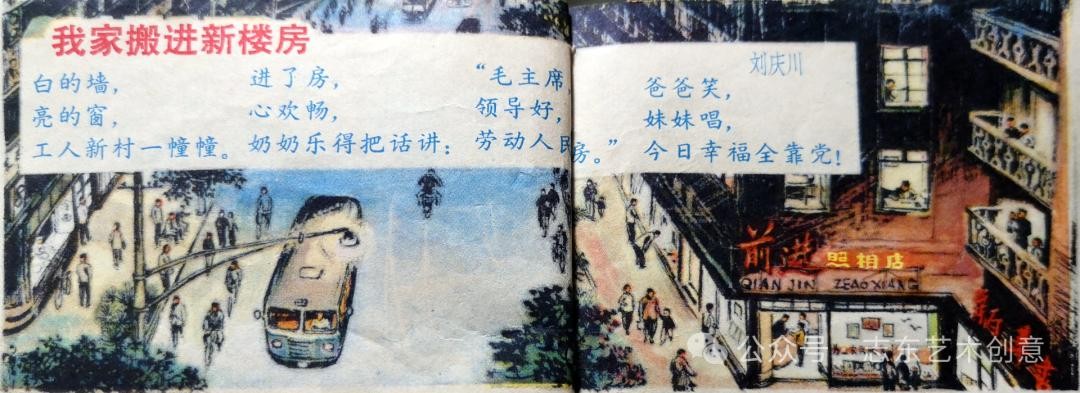 我家搬进新楼房
刘庆川
白的墙，
亮的窗，
工人新村一幢幢。
进了房，
心欢畅，
奶奶乐得把话讲：
“毛主席，
领导好，
劳动人民房。”
爸爸笑，
妹妹唱，
今日幸福全靠党！
前进 照相店
QIAN JIN ZEAOXIANG
公众号·志东艺术创意